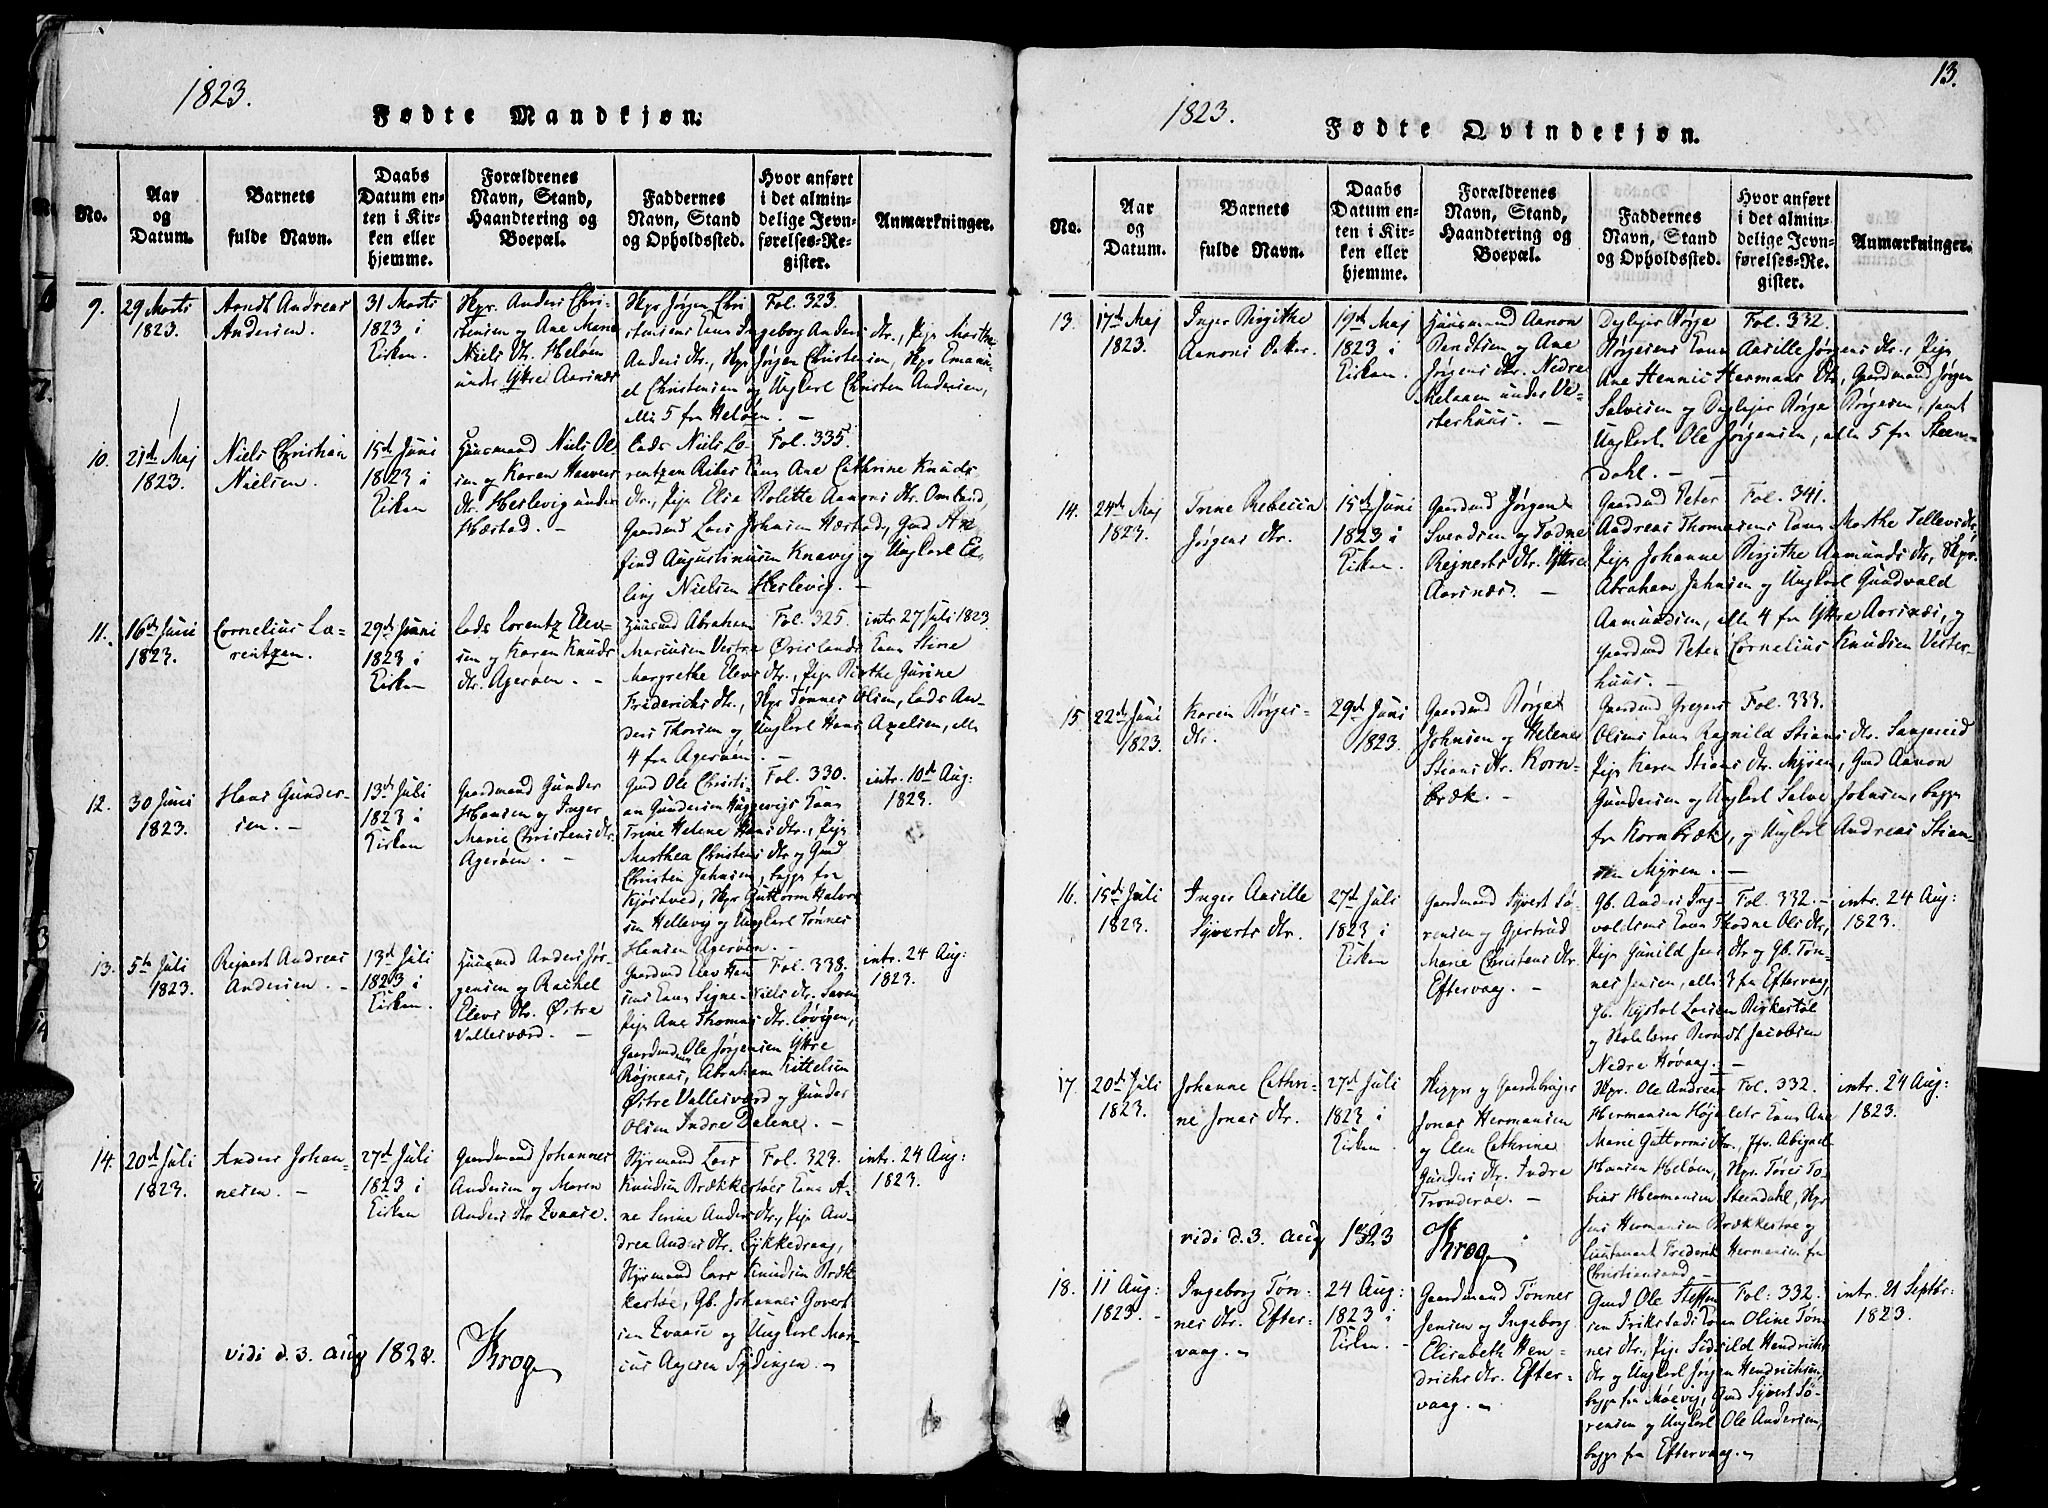 1823.
Fødte Mandkjøn.
No.
Aar
og
Datum.
Barnets
fulde Navn.
Daabs
Datum en-
ten i Kir-
ken eller
hjemme.
Forældrenes
Navn, Stand,
Haandtering og
Boepæl.
Faddernes
Navn, Stand
og Opholdssted.
Hvor anført
i det almin-
delige Jevn-
førelses-Re-
gister.
Anmærkninger.
9.
29 Marti
1823.
Arndt Andreas
Andersen.
31 Marti
1823 i
Kirken.
Skpr. Anders Chri-
stensen og Ane Marie
Niels Dtr. Heløen
under Yttre Aarsnæs
Skpr Jørgen Chri-
stensens Kone Ingeborg Anders Dtr., Pige Marthe
Anders Dtr., Skpr Jørgen Christensen, Skpr Emanu-
el Christensen og Ungkarl Christen Andersen,
alle 5 fra Heløen. —
Fol. 323.
10.
21de Maj
1823.
Niels Christian
Nielsen.
15de Juni
1823 i
Kirken
Huusmand Niels Ol-
sen og Karen Haavors
Dtr. Heslevig under
Hæstad. —
Lods Niels Lo-
rentzen Ribes Kone Ane Cathrine Knuds
Dtr., Pige Elsa Bolitte Aanons Dtr. Omland,
Gaardmd Lars Johnsen Hæstad, Gmd Arn-
find Augustinusen Knavig og Ungkarl El-
ling Nielsen Heslevig. —
Fol. 335.
11.
16de Juni
1823.
Cornelius La-
rentzen.
29de Juni
1823 i
Kirken
Lods Lorentz Elev-
sen og Karen Knuds
Dtr. Agerøen. —
Huusmd Abraham
Marcusen Vestre Ørislands Kone Stine
Margrethe Elevs Dtr., Pige Birthe Gurine
Fredericks Dtr., Skpr Tønnes Olsen, Lods An-
ders Thorsen og Ungkarl Hans Axelsen, alle
4 fra Agerøen. —
Fol. 325.
intr. 27 Juli 1823.
12.
30 Juni
1823.
Hans Gunder-
sen. —
13de Juli
1823 i
Kirken
Gaardmand Gunder
Hansen og Inger
Marie Christens Dtr.
Agerøen. —
Gmd Ole Christi-
an Gundersen Häggevigs Kone
Trine Helene Hans Dtr., Pige
Marthea Christens Dtr og Gmd
Christen Johnsen, begge fra
Kjøstved, Skpr Guttorm Halvor
sen Hellevig og Ungkarl Tønnes
Hansen Agerøen. —
Fol. 330.
intr. 10de Aug:
1823.
13.
5te Juli
1823.
Rejnert Andreas
Andersen. —
13de Juli
1823 i
Kirken
Huusmd Anders Jør-
gensen og Rachel
Elevs Dtr. Østre
Vallesværd. —
Gaardmd Elev Han
sens Kone Signe Niels Dtr. Saven
Pige Ane Thomas Dtr. Løvigen,
Gaardmd Ole Jørgensen Yttre
Røjnaas, Abraham Kittelsen
Østre Vallesværd og Gunder
Olsen Indre Dalene. —
Fol. 338.
intr. 24 Aug:
1823.
14.
20de Juli
1823.
Anders Johan-
nesen. —
27de Juli
1823 i
Kirken
Gaardmand Johannes
Andersen og Maren
Anders Dtr. Qvaase.
Styrmand Lars
Knudsen Brækkestøes Kone A-
ne Serine Anders Dtr., Pige An-
drea Anders Dtr. Lykkedraag,
Styrmand Lars Knudsen Bræk
kestøe, Gb. Johannes Govert
sen Qvaase og Ungkarl Mar-
cus Aagesen Sydingen. —
Fol. 323.
intr. 24 Aug:
1823.
vidi d. 3. aug 1823.
Krog
13.
1823.
Fødte Qvindekjøn.
No.
Aar
og
Datum.
Barnets
fulde Navn.
Daabs
Datum en-
ten i Kir-
ken eller
hjemme.
Forældrenes
Navn, Stand,
Haandtering og
Boepæl.
Faddernes
Navn, Stand
og Opholdssted.
Hvor anført
i det almin-
delige Jevn-
førelses-Re-
gister.
Anmærkninger.
13.
17de Maj
1823.
Inger Birgithe
Aanons Datter.
19de Maj
1823 i
Kirken.
Huusmand Aanon
Bendtsen og Ane
Jørgens Dtr. Nedre
Kelaaen under Ve-
sterhuus. —
Deglejer Børge
Børgesens Kone Aasille Jørgens Dtr., Pige
Ane Hennie Hermans Dtr., Gaardmand Jørgen
Salvesen og Deglejer Børge Børgesen, samt
Ungkarl Ole Jørgensen, alle 5 fra Steen-
dahl. —
Fol. 332.
14.
24de Maj
1823.
Trine Rebecca
Jørgens Dtr.
15de Juni
1823 i
Kirken.
Gaardmd Jørgen
Svendsen og Todne
Rejnerts Dtr. Yttre
Aarsnæs. —
Gaardmd Peter
Andreas Thomasens Kone Marthe Tellevs Dtr,
Pige Johanne Birgithe Aamunds Dtr, Skpr.
Abraham Johnsen og Ungkarl Gundvald
Aamundsen, alle 4 fra Yttre Aarsnæs, og
Gaardmd Peter Cornelius Knudsen Vester-
huus. —
Fol. 341.
15.
22de Juni
1823.
Karen Børges
Dtr.
29de Juni
1823.
Gaardmd Børge
Johnsen og Helene
Stians Dtr. Korn-
bræk. —
Gaardmd Gregers
Olsens Kone Ragnild Stians Dtr. Sangereid
Pige Karen Stians Dtr. Myren, Gmd Aanon
Gundersen og Ungkarl Salve Johnsen, begge
fra Kornbræk, og Ungkarl Andreas Stian-
sen Myren. —
Fol. 333.
16.
15de Juli
1823.
Inger Aasille
Syverts Dtr.
27de Juli
1823 i
Kirken
Gaardmand Syvert Sø-
rensen og Gjertrud
Marie Christens Dtr.
Eftervaag. —
Gb. Anders Ing-
valdsens Kone Thodne Ols Dtr,
Pige Gunild Jens Dtr og Gb. Tøn-
nes Jensen, alle 3 fra Eftervaag,
Gb. Kystol Larsen Birkestøl
og Skolelærer Berndt Jacobsen
Nedre Høvaag. —
Fol. 332. —
intr. 24 Aug:
1823.
17.
20de Juli
1823.
Johanne Cathri-
ne Jonas Dtr.
27de Juli
1823 i
Kirken.
Skippr og Gaardebruger
Jonas Hermansen
og Elen Cathrine
Gunders Dtr. Indre
Tronderøe. —
Skpr. Ole Andreas
Hermansen Højelets Kone Ane
Marie Guttorms Dtr., Jfr. Abigael
Hansen Heløen, Skpr. Tøres To-
bias Hermansen Steendahl, Skpr
Jens Hermansen Brækkestøe og
Lieutenant Frederik Hermansen fra
Christiansand. —
Fol. 332.
intr. 24 Aug:
1823.
vidi d. 3. aug 1823
Krog
18.
11 Aug:
1823. —
Ingeborg Tøn-
nes Dtr. Efter-
vaag. —
24 Aug:
1823 i
Kirken. —
Gaardmand Tønnes
Jensen og Ingeborg
Elisabeth Hen-
drichs Dtr. Efter-
vaag. —
Gmd Ole Steffen
sen Trikstads Kone Oline Tøn-
nes Dtr., Pige Sidsild Hendrichs
Dtr og Ungkarl Jørgen Hendrichsen,
begge fra Møevig, Gmd Syvert Sø-
rensen og Ungkarl Ole Andersen,
begge fra Eftervaag. —
Fol: 332.
intr. 21 Septbr:
1823.